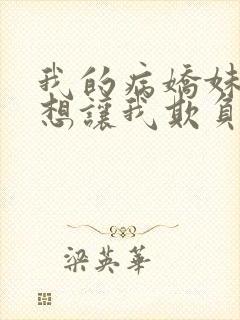 我的病嬌妹
想讓我欺負
梁英華